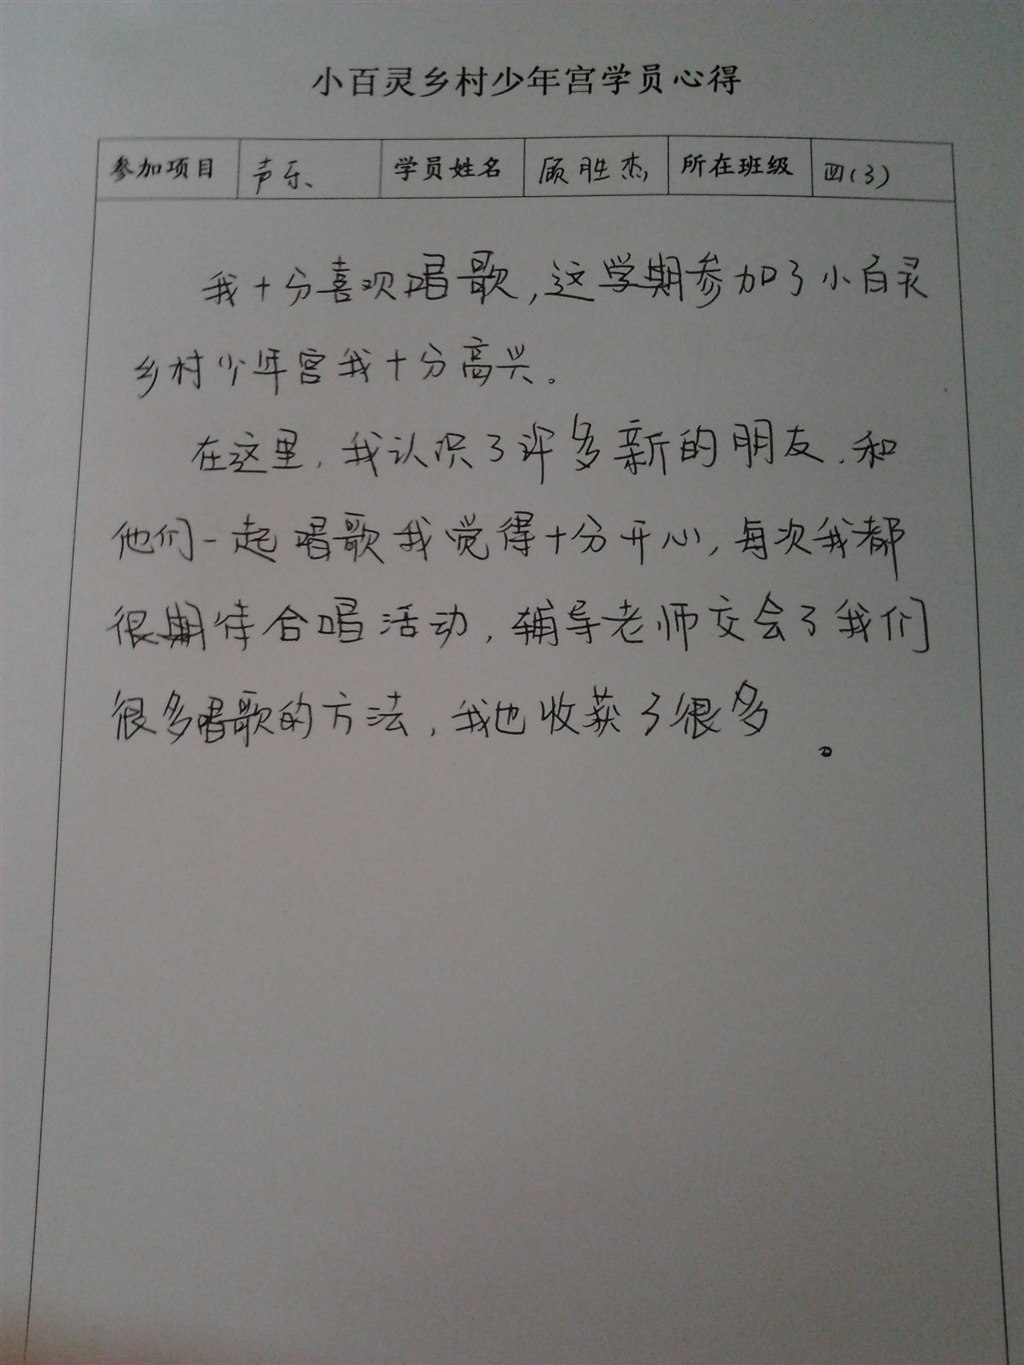 小百灵乡村少年宫学员心得
参加项目 声乐 学员姓名 顾胜杰 所在班级 四(3)
我十分喜欢唱歌,这学期参加了小百灵
乡村少年宫我十分高兴。
在这里,我认识了许多新的朋友,和
他们一起唱歌我觉得十分开心,每次我都
很期待合唱活动,辅导老师交会了我们
很多唱歌的方法,我也收获了很多。